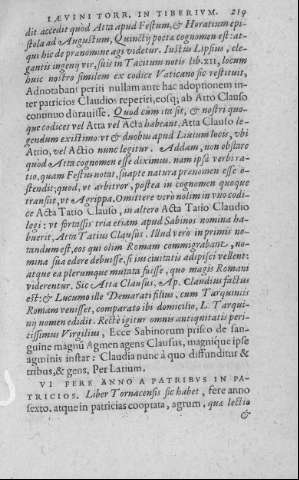 LÆVINI TORR. IN TIBERIVM. 219
dit accedit quòd Atta apud Festum, & Horatium epi-
stola ad Augustum, Quinctij poëta cognomen est: at-
qui hic de prænomine agi videtur. Iustus Lipsius, ele-
gantis ingenij vir, suis in Tacitum notis lib. XII, locum
huic nostro similem ex codice Vaticano sic restituit,
Adnotabant periti nullam ante hac adoptionem in-
ter patricios Claudios reperiri, eosq; ab Atto Clauso
continuo durauisse. Quod cùm ita sit, & nostri quo-
que codices vel Atta vel Acta habeant, Atta Clauso le-
gendum existimo: vt & duobus apud Liuium locis, vbi
Attio, vel Actio nunc legitur. Addam, non obstare
quòd Atta cognomen esse diximus. nam ipsa verbi ra-
tio, quam Festus notat, suapte natura prænomen esse o-
stendit; quod, vt arbitror, postea in cognomen quoque
transiit, vt & Agrippa. Omittere verò nolim in vno codi-
ce Acta Tatio Clauso, in altero Acta Tacio Claudio
legi: vt fortassis tria etiam apud Sabinos nomina ha-
buerit, Atta Tatius Clausus. Illud verò in primis no-
tandum est, eos qui olim Romam commigrabant, no-
mina sua edere debuisse, si ius ciuitatis adipisci vellent:
atque ea plerumque mutata fuisse, quo magis Romani
viderentur. Sic Atta Clausus, Ap. Claudius factus
est: & Lucumo ille Demarati filius, cum Tarquiniis
Romam venisset, comparato ibi domicilio, L. Tarqui-
nij nomen edidit. Rectè igitur omnis antiquitatis peri-
tissimus Virgilius, Ecce Sabinorum prisco de san-
guine magnū Agmen agens Clausus, magnique ipse
agminis instar: Claudia nunc à quo diffunditur &
tribus, & gens, Per Latium.
VI FERE ANNO A PATRIBVS IN PA-
TRICIOS. Liber Tornacensis sic habet, fere anno
sexto. atque in patricias cooptata, agrum. quæ lectio
&